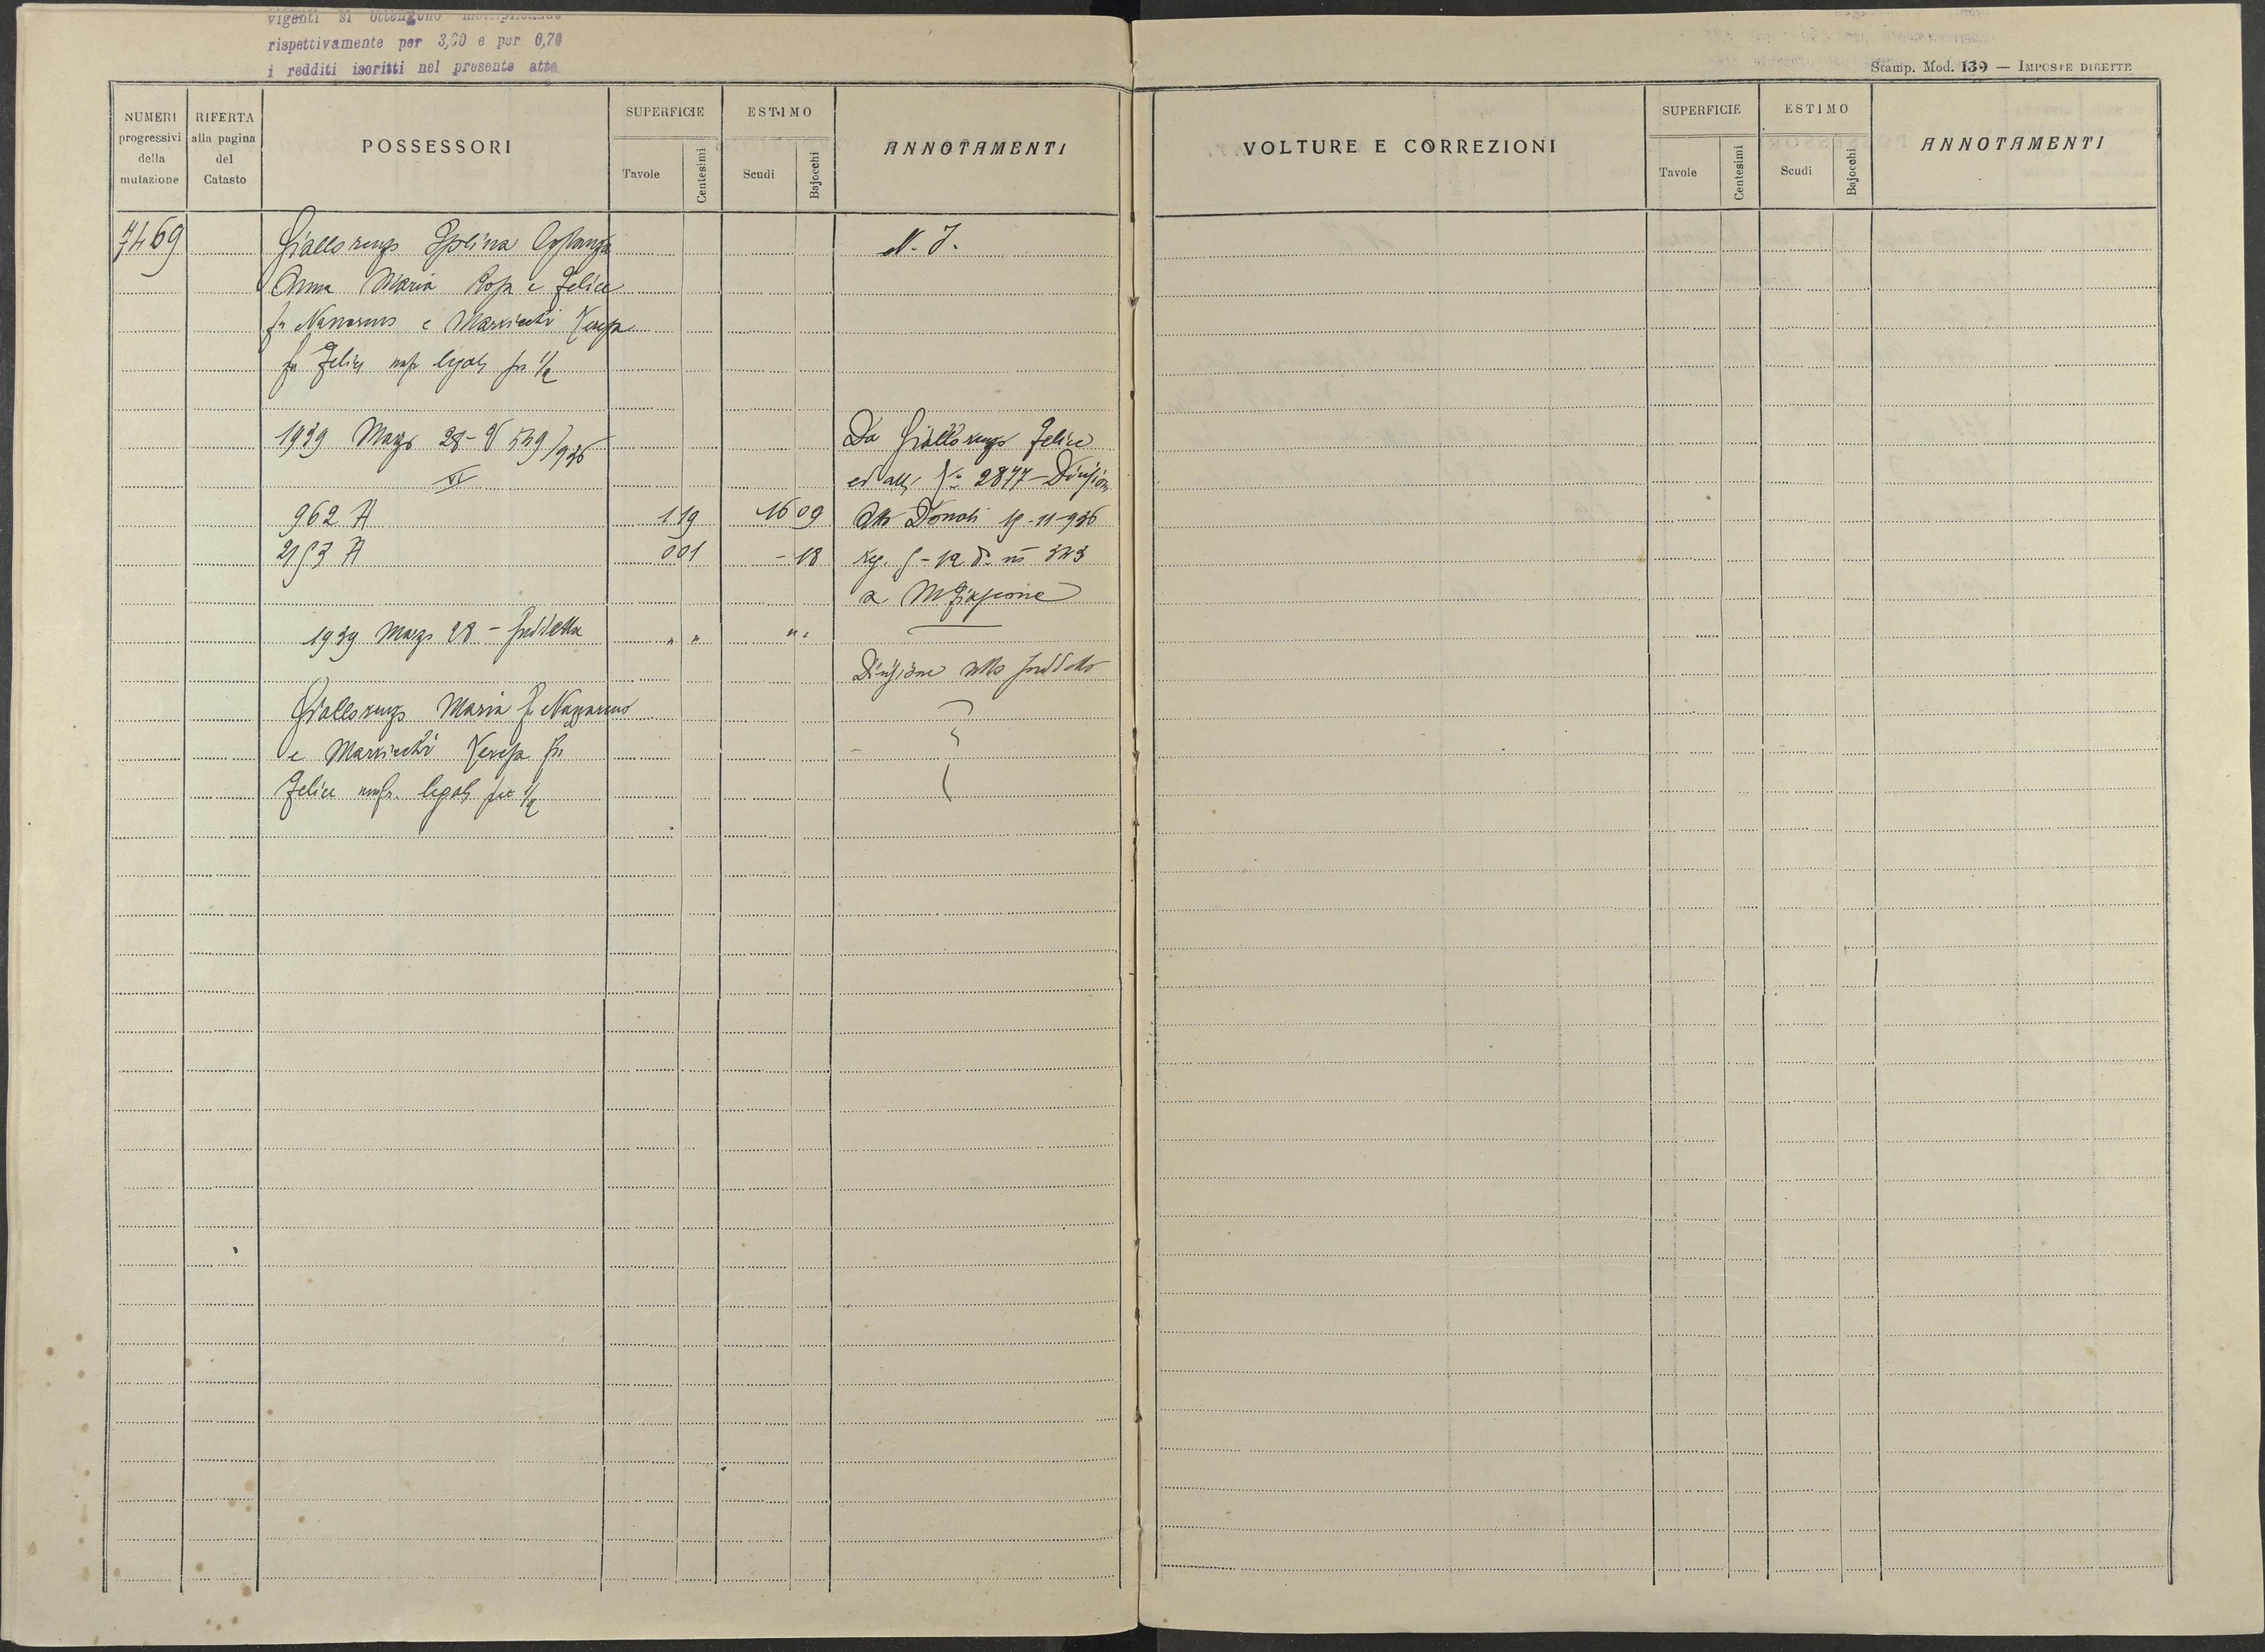 vigenti si ottengono moltiplicando
rispettivamente per 3,60 e per 0,70
i redditi iscritti nel presente atto
Stamp. Mod. 139 — IMPOSTE DIRETTE
NUMERI progressivi della mutazione
RIFERTA alla pagina del Catasto
POSSESSORI
SUPERFICIE
Tavole
Centesimi
ESTIMO
Scudi
Bajocchi
ANNOTAMENTI
VOLTURE E CORREZIONI
SUPERFICIE
Tavole
Centesimi
ESTIMO
Scudi
Bajocchi
ANNOTAMENTI
7469 Giallorenzo Costanza N. I.
Anna Maria Rosa e Felice
fu Nazareno e Teresa
fu Felice usufr. legale per 1/2
1939 Marzo 28 - V 539/936 Da Giallorenzo Felice
XI ed altri N° 2877 - Divisione
962 A 1 19 16 09 Atto Donati 19-11-936
2153 A 0 01 - 18 reg. 5-12 d° n° 323
a M. Giorgio
1939 Marzo 28 - suddetta " " " "
Divisione atto suddetto
Giallorenzo Maria fu Nazareno
e Teresa fu
Felice usufr. legale per 1/2